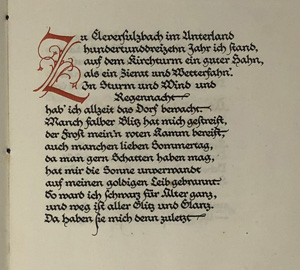 Zu Cleversulzbach im Unterland
hundertunddreizehn Jahr ich stand,
auf dem Kirchturm ein guter Hahn,
als ein Zierat und Wetterfahn'.
In Sturm und Wind und
Regennacht
hab' ich allzeit das Dorf bewacht.
Manch falber Blitz hat mich gestreift,
der Frost mein'n roten Kamm bereift,
auch manchen lieben Sommertag,
da man gern Schatten haben mag,
hat mir die Sonne unverwandt
auf meinen goldigen Leib gebrannt.
So ward ich schwarz für Alter ganz,
und weg ist aller Glitz und Glanz.
Da haben sie mich denn zuletzt